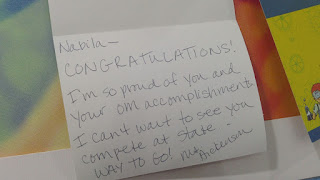 Nabila—
CONGRATULATIONS!
I'm so proud of you and
your OM accomplishments
I can't wait to see you
compete at state.
WAY TO GO!